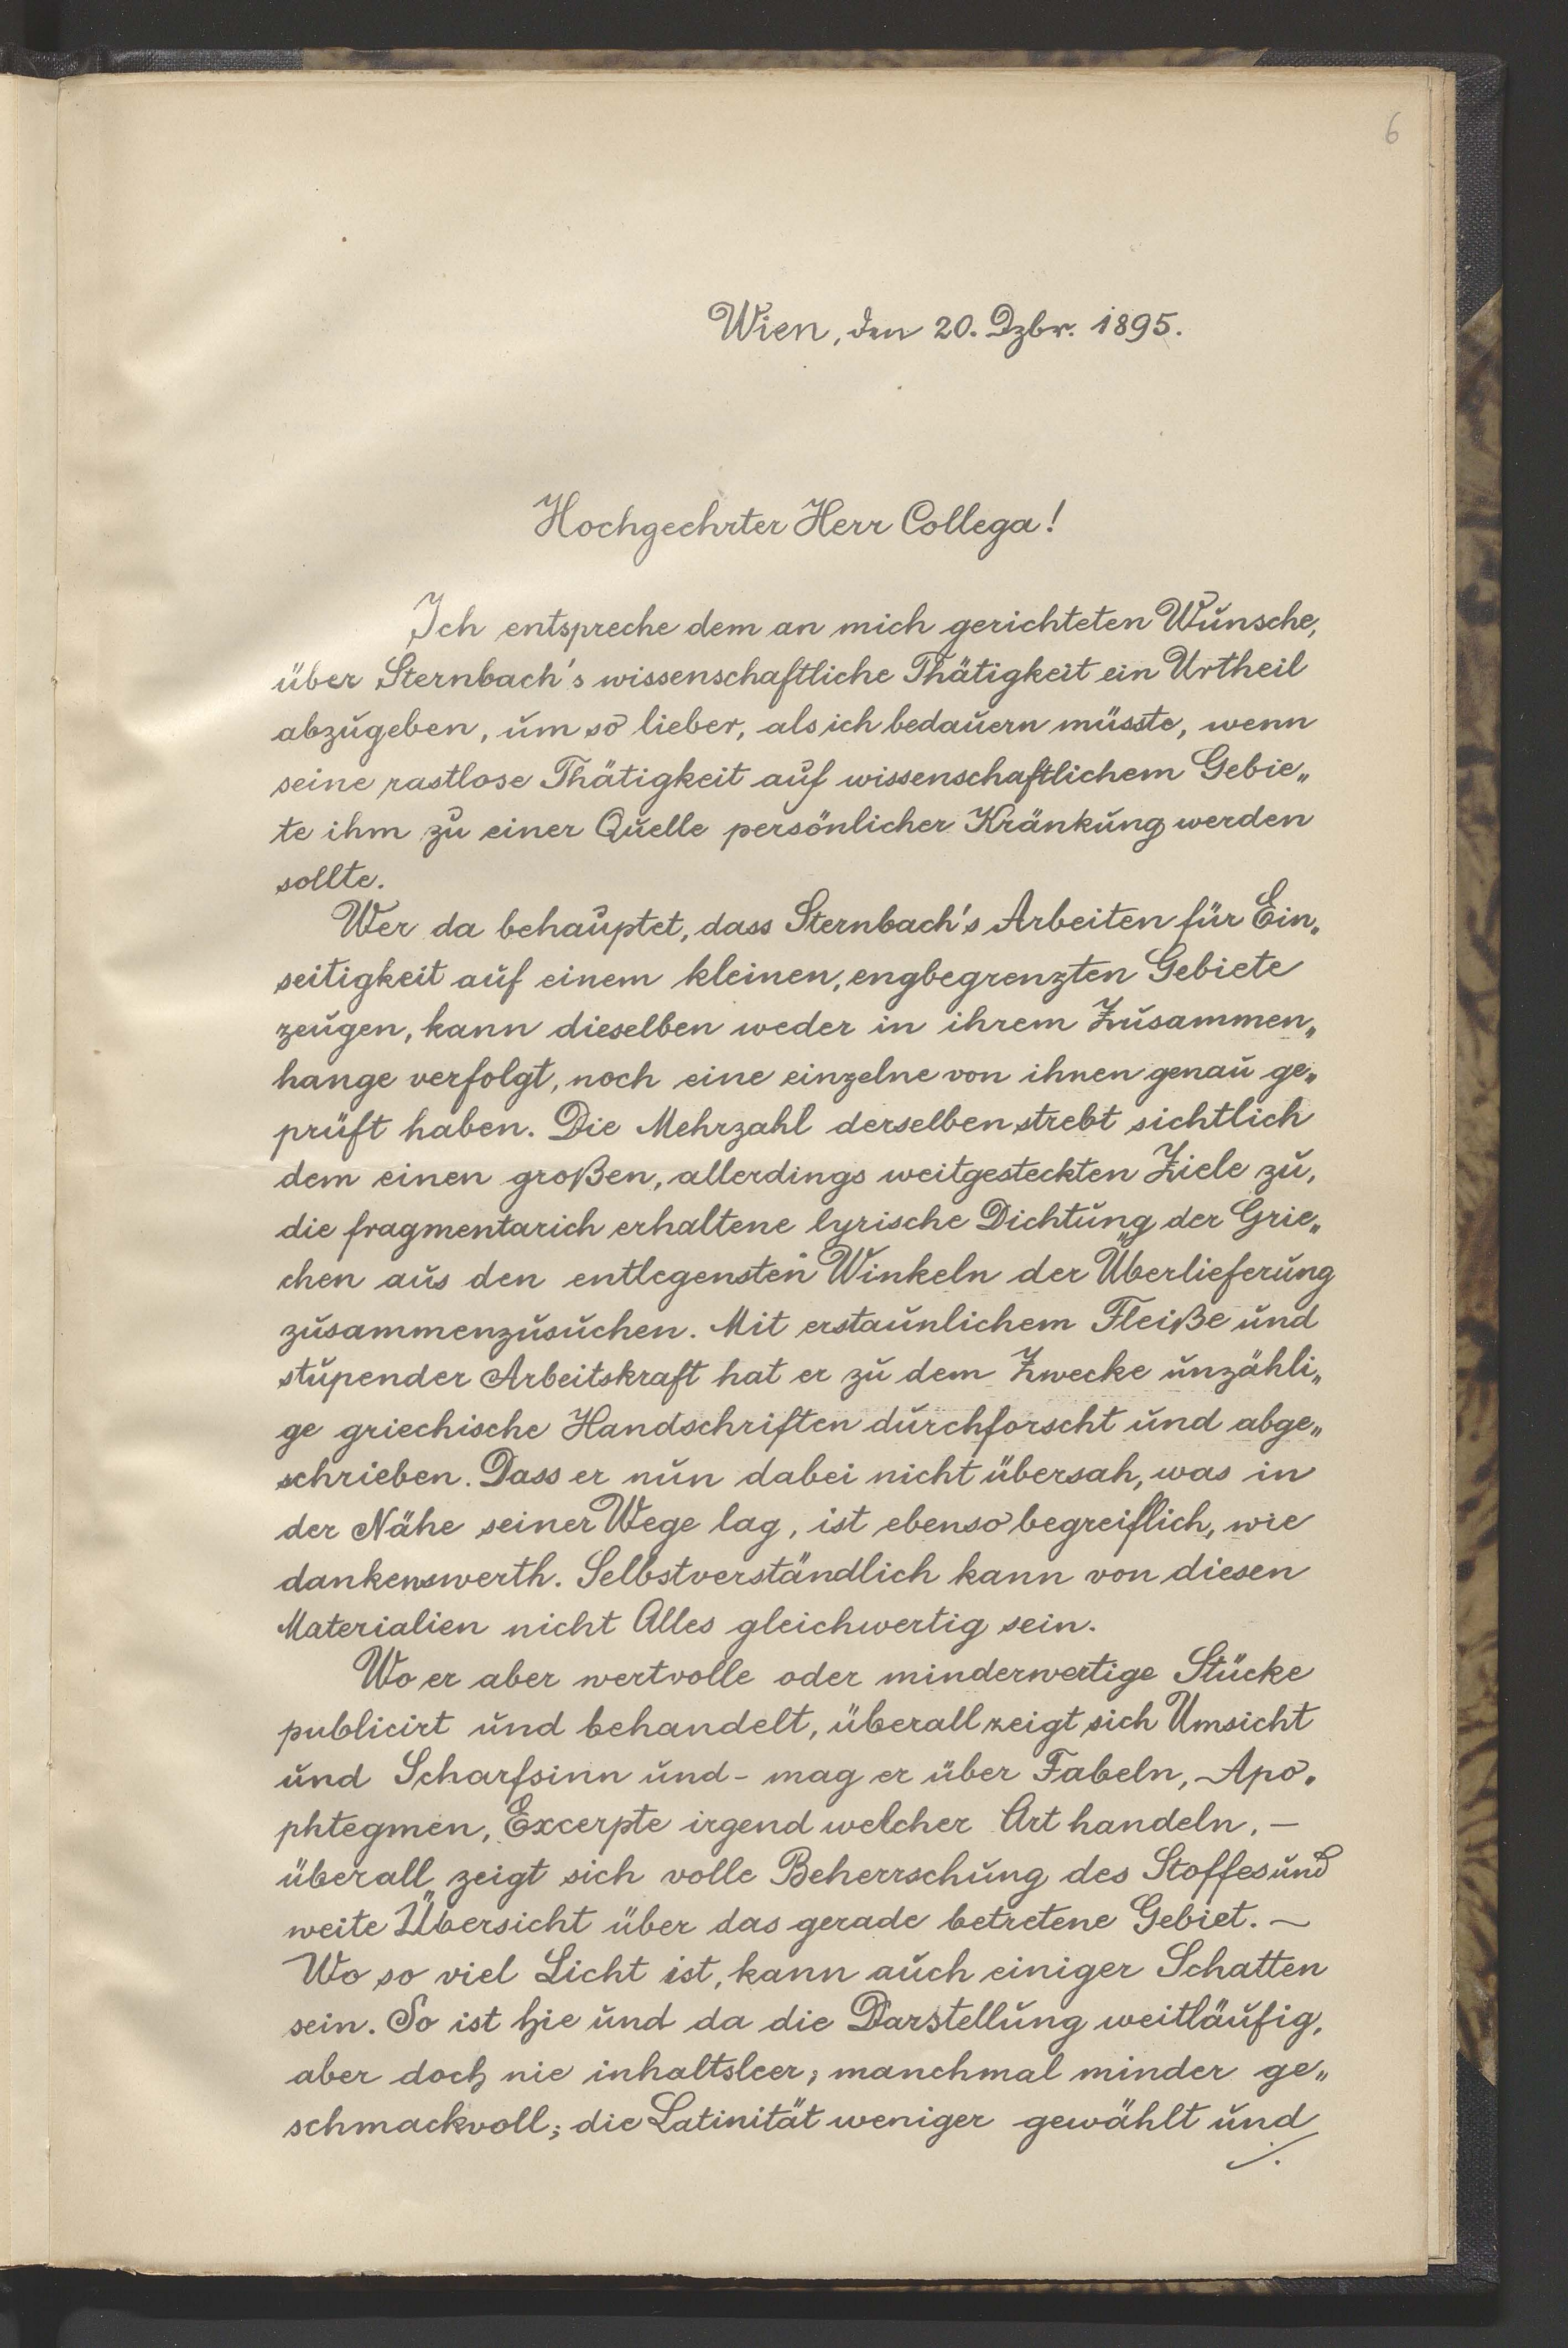 6
Wien, den 20. Dzbr. 1895.
Hochgeehrter Herr Collega!
Ich entspreche dem an mich gerichteten Wunsche,
über Sternbach's wissenschaftliche Thätigkeit ein Urtheil
abzugeben, um so lieber, als ich bedauern müsste, wenn
seine rastlose Thätigkeit auf wissenschaftlichem Gebie„
te ihm zu einer Quelle persönlicher Kränkung werden
sollte.
Wer da behauptet, dass Sternbach's Arbeiten für Ein„
seitigkeit auf einem kleinen, engbegrenzten Gebiete
zeugen, kann dieselben weder in ihrem Zusammen„
hange verfolgt, noch eine einzelne von ihnen genau ge„
prüft haben. Die Mehrzahl derselben strebt sichtlich
dem einen großen, allerdings weitgesteckten Ziele zu,
die fragmentarich erhaltene lyrische Dichtung der Grie„
chen aus den entlegensten Winkeln der Überlieferung
zusammenzusuchen. Mit erstaunlichem Fleiße und
stupender Arbeitskraft hat er zu dem Zwecke unzähli„
ge griechische Handschriften durchforscht und abge„
schrieben. Dass er nun dabei nicht übersah, was in
der Nähe seiner Wege lag, ist ebenso begreiflich, wie
dankenswerth. Selbstverständlich kann von diesen
Materialien nicht Alles gleichwertig sein.
Wo er aber wertvolle oder minderwertige Stücke
publicirt und behandelt, überall zeigt sich Umsicht
und Scharfsinn und - mag er über Fabeln, Apo„
phtegmen, Excerpte irgend welcher Art handeln, —
überall zeigt sich volle Beherrschung des Stoffes und
weite Übersicht über das gerade betretene Gebiet. —
Wo so viel Licht ist, kann auch einiger Schatten
sein. So ist hie und da die Darstellung weitläufig,
aber doch nie inhaltsleer; manchmal minder ge„
schmackvoll; die Latinität weniger gewählt und
./.